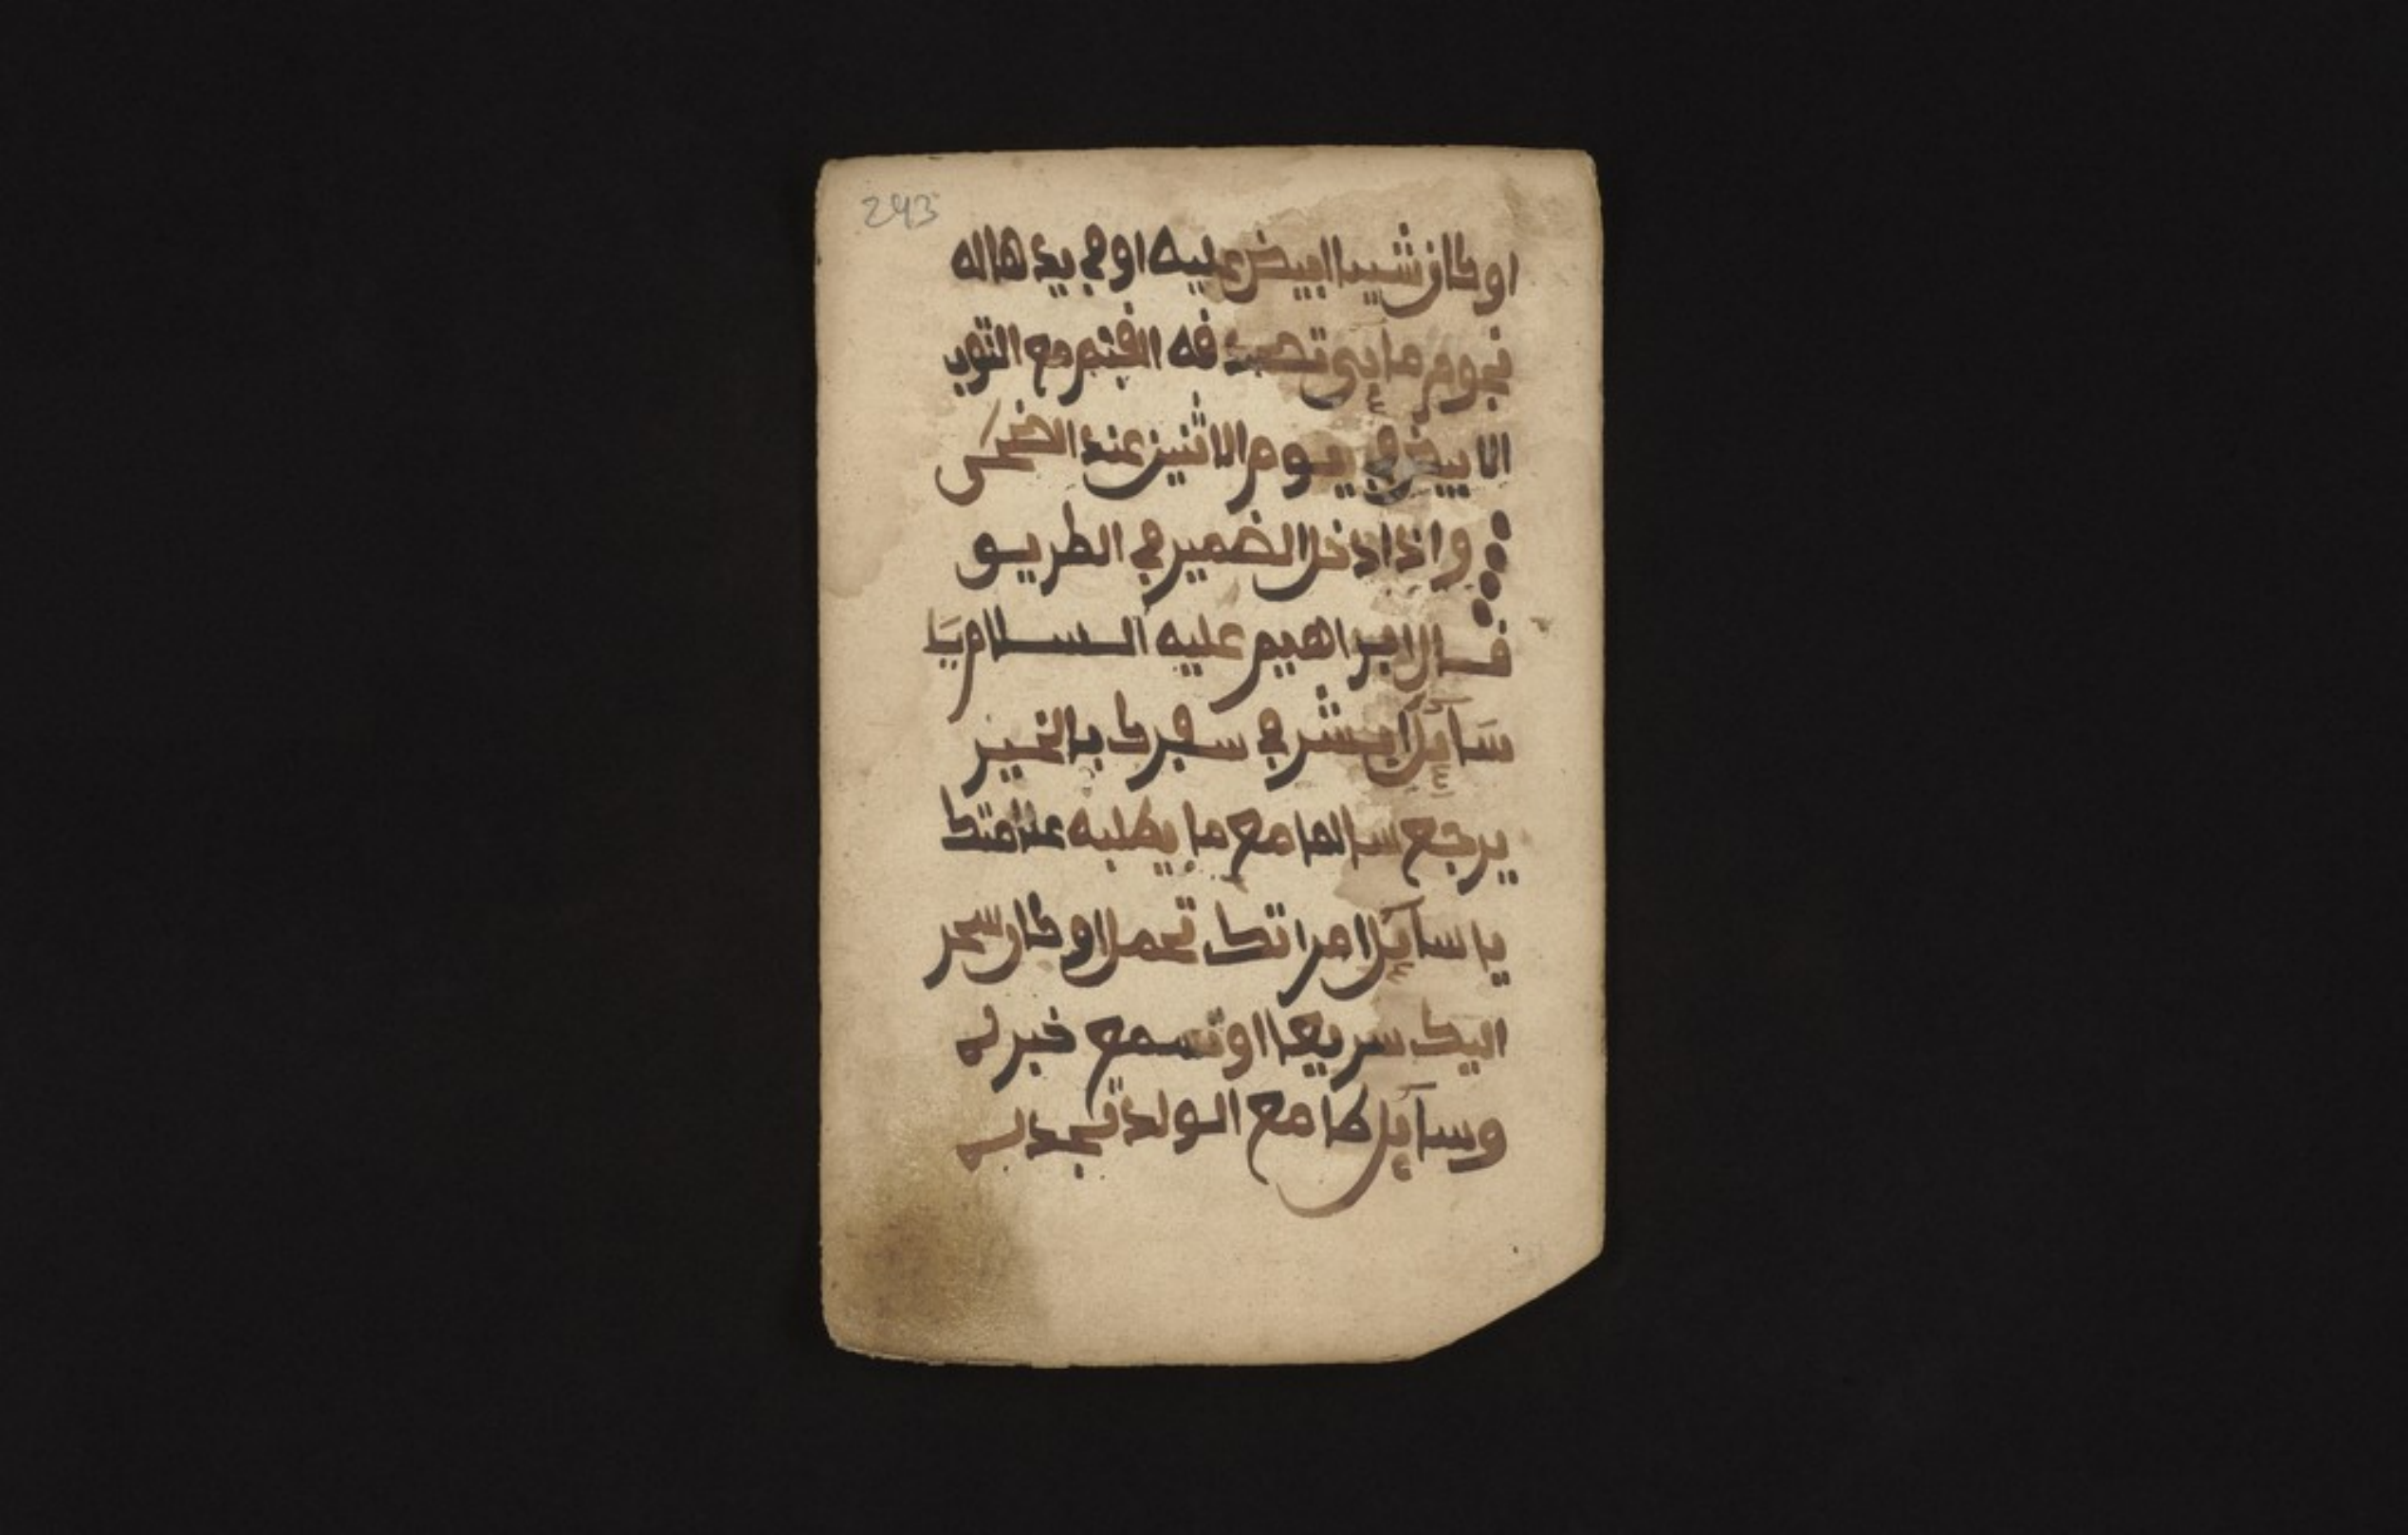 243
او كان شيئا ابيض عليه او في يدها له
نجوم ما بي تصدفه الغنم مع الثوب
الابيض في يوم الاثنين عند الضحى
واذا دخل الضمير في الطريق
قال ابراهيم عليه السلام يا
سايل ابشر في سفرك بالخير
يرجع سالما مع ما يطلبه علامتك
يا سايل امراتك تحمل او كان سحر
اليك سريعا او تسمع خبر
وسايل كا مع الولد تجد